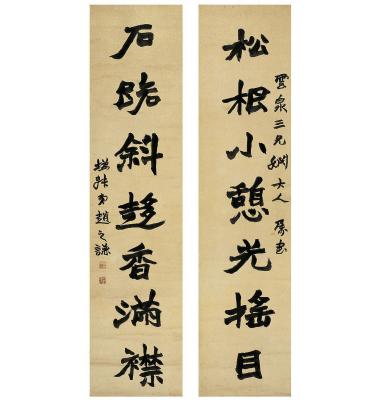 松根小憩光搖目
雲泉三兄姻大人屬書
石路斜趍香滿襟
撝叔弟趙之謙